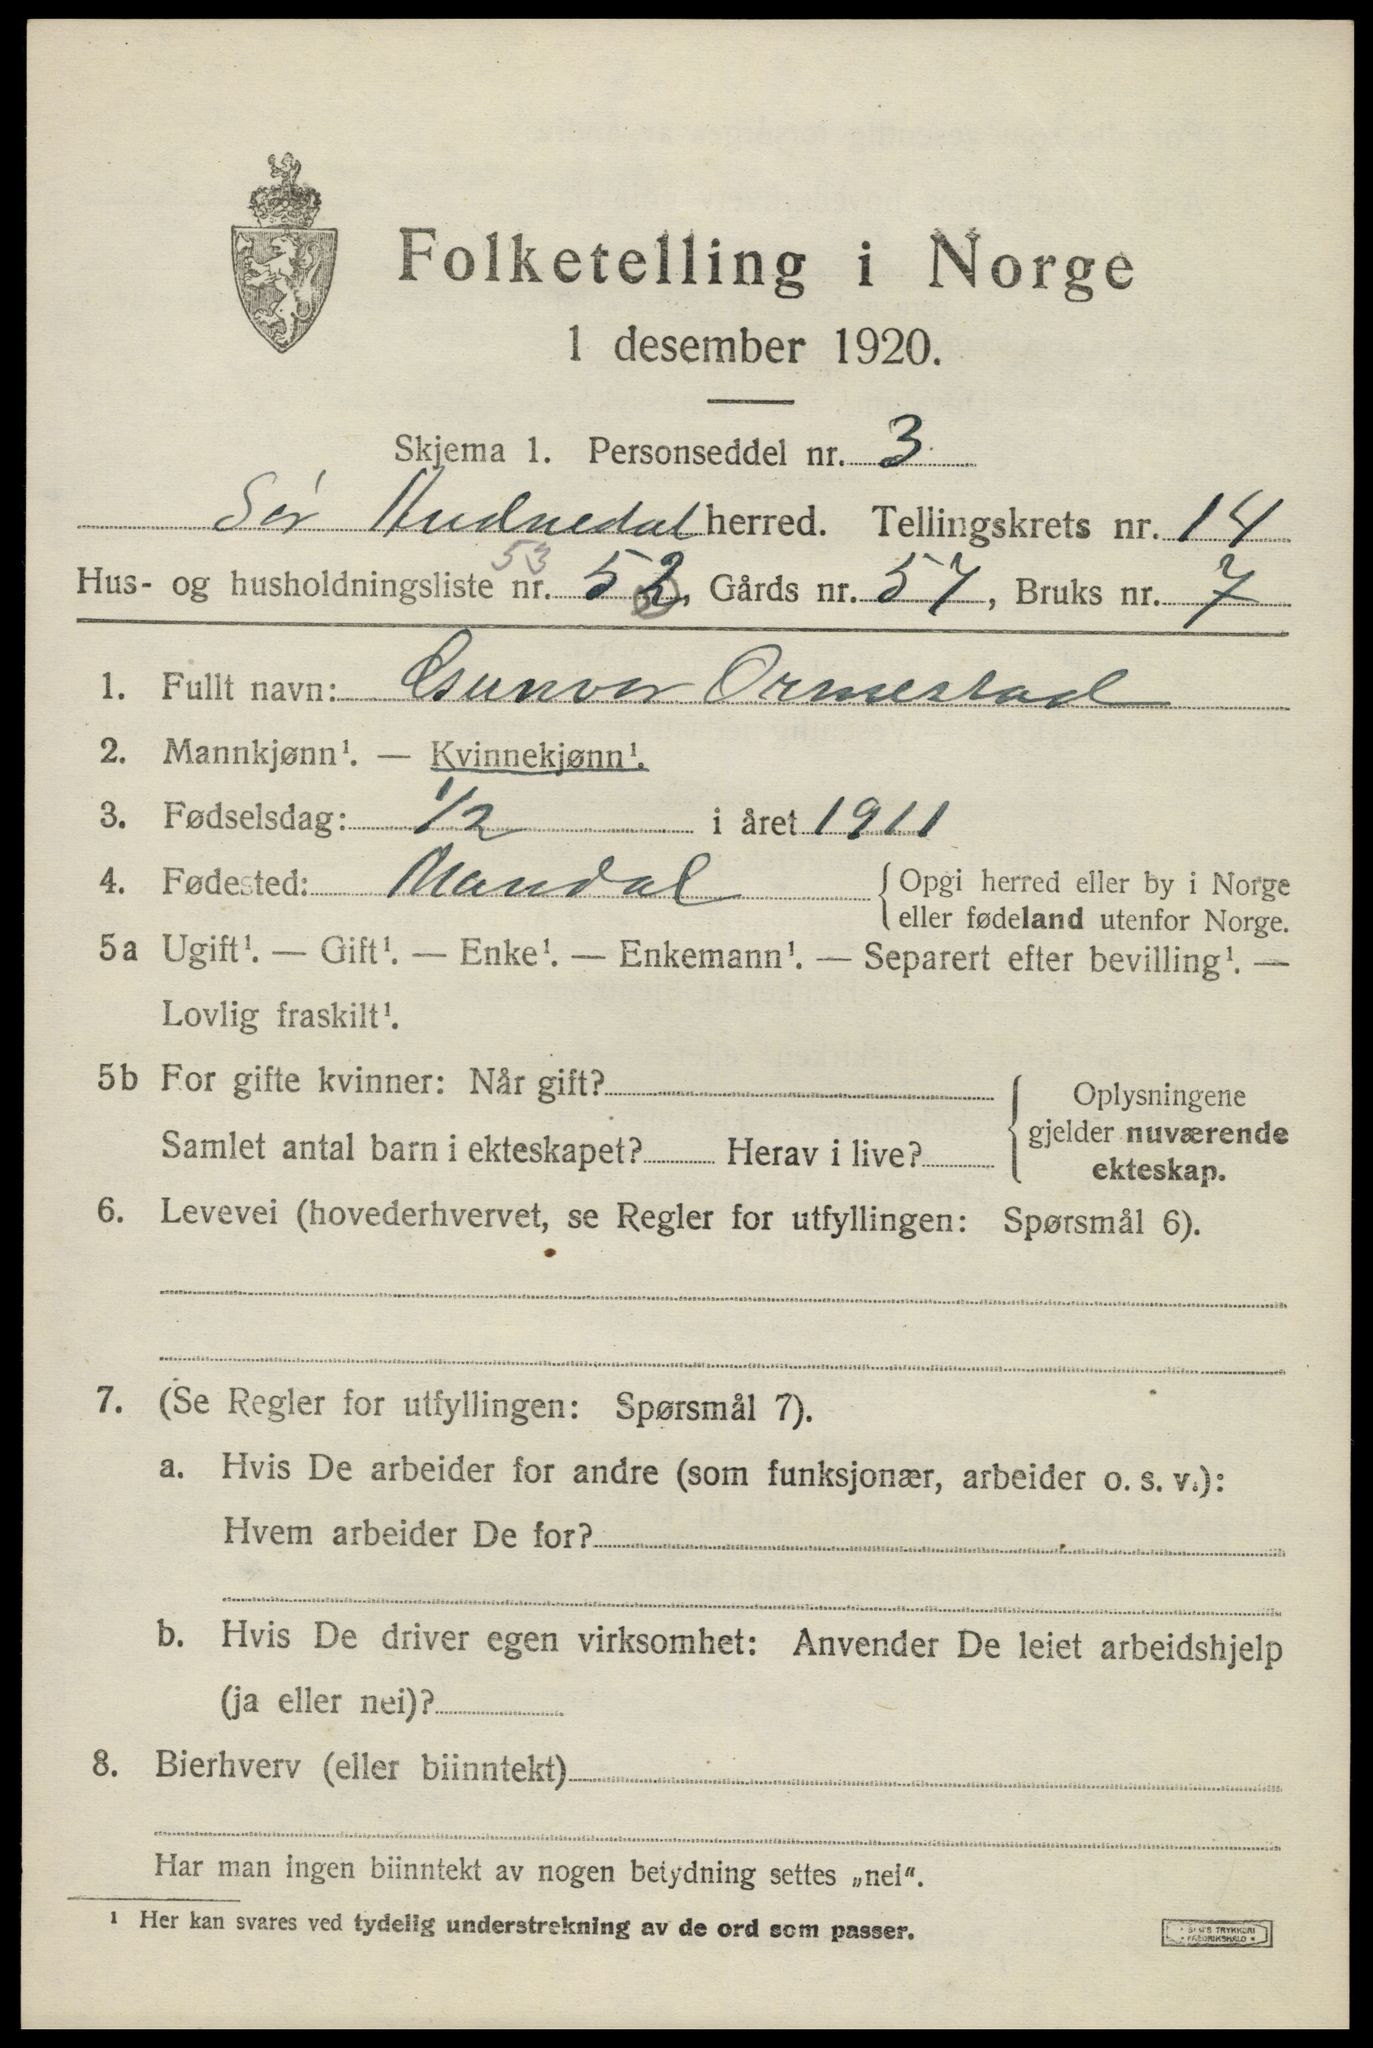 Folketelling i Norge
1 desember 1920.
Skjema 1. Personseddel nr. 3
Sør Audnedal herred. Tellingskrets nr. 14
53
Hus- og husholdningsliste nr. 52, Gårds nr. 57, Bruks nr. 7
1. Fullt navn: Gunvor Ormestad
2. Mannkjønn¹. — Kvinnekjønn¹.
3. Fødselsdag: 1/2 i året 1911
4. Fødested: Mandal {Opgi herred eller by i Norge
eller fødeland utenfor Norge.
5a Ugift¹. — Gift¹. — Enke¹. — Enkemann¹. — Separert efter bevilling¹. —
Lovlig fraskilt¹.
5b For gifte kvinner: Når gift? Oplysningene
gjelder nuværende
Samlet antal barn i ekteskapet? Herav i live?
ekteskap.
6. Levevei (hovederhvervet, se Regler for utfyllingen: Spørsmål 6).
7. (Se Regler for utfyllingen: Spørsmål 7).
a. Hvis De arbeider for andre (som funksjonær, arbeider o. s. v.):
Hvem arbeider De for?
b. Hvis De driver egen virksomhet: Anvender De leiet arbeidshjelp
(ja eller nei)?
8. Bierhverv (eller biinntekt)
Har man ingen biinntekt av nogen betydning settes „nei“.
¹ Her kan svares ved tydelig understrekning av de ord som passer.
TRYKKERI
FREDRIKSHALD